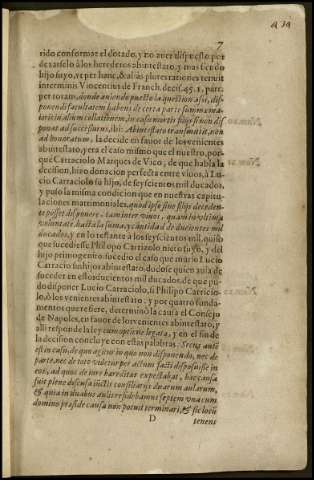 7
rido conformar el dotado, y no auer dispuesto, por
darselo à los herederos abintestato, y mas siendo
hijo suyo, vt per hanc, & alias plures rationes tenuit
in terminis Vincentius de Franch. decis. 45. 1. part.
per totam, donde auiendo puesto la question assi, dis-
ponen di facultatem habens de certa parte
ponat ad successurus, ibi: Ab intestato transmittit, non
ad donatarum, la decide en fauor de los venientes
abintestato, y era el caso mismo que el nuestro, por-
què Carraciolo Marques de Vico, de que habla la
decission, hizo donacion perfecta entre viuos, à Lu-
cio Carraciolo su hijo, de seyscientos mil ducados,
y puso la misma condicion que en nuestras capitu-
laciones matrimoniales, quod ipse sine filijs deceden-
te posset disponere, tam inter viuos, quam in vltima
voluntate, hasta la suma y cantidad de ducientos mil
ducados, y en lo restante à los seyscientos mil, quiso
que sucediesse Philipo Carriciolo nieto suyo, y del
hijo primogenito: sucedio el caso que murio Lucio
Carracio sin hijos abintestato: dudose quien auia de
suceder en essos ducientos mil ducados, de que pu-
do disponer Lucio Carraciolo, si Philipo Carricio-
lo, ò los venientes abintestato: y por quatro funda-
mentos que refiere, determinò la causa el Consejo
de Napoles, en fauor de los venientes abintestato, y
alli responde la ley cum optione legata, y en el fin de
la decision concluye con estas palabras. Secus autē
est in casu, de quo agitur in quo non disponendo, nec de
parte, nec de toto videtur per actum facti disposuisse in
eos, ad quos de iure hæreditas expectabat, hæc causa
suit plene discusa iunctis consiliarijs duarum aularum,
& quia in duabus aulis residebamus septem vna cum
domino præside causa non potuit terminari, & sic locū
D
tenens